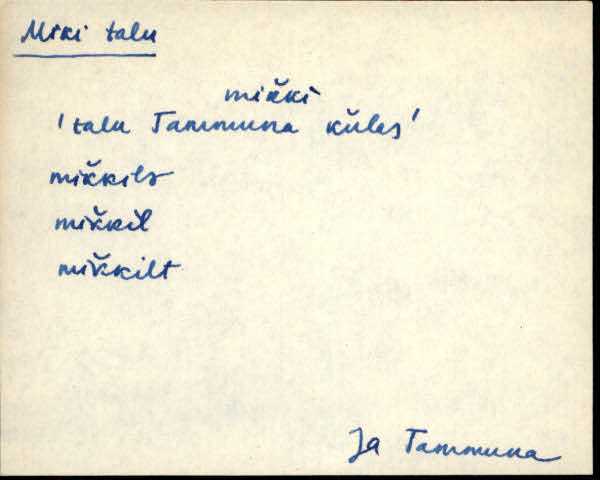 Miki talu
mik̆ki
'talu Tammuna külas'
mik̆kilɜ
mik̆kil
mik̆kilt
Ja Tammuna